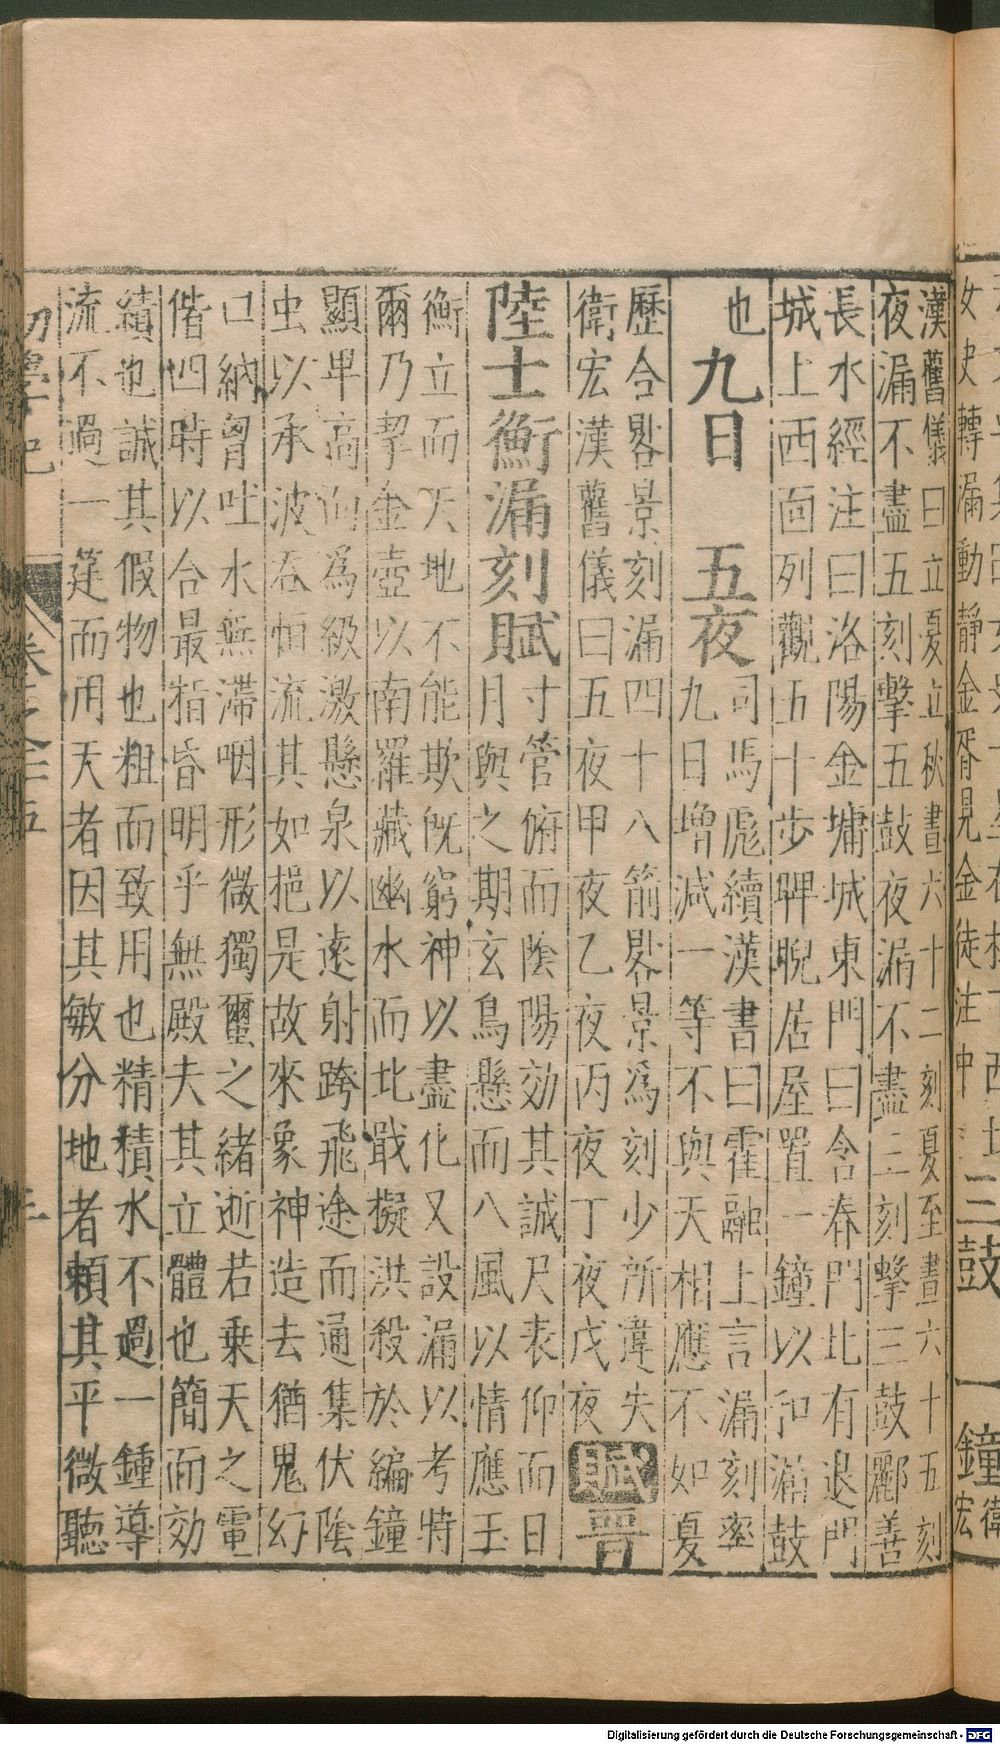 女史轉漏動靜金胥見金徒注中
三鼓 一鐘 衛宏
漢舊儀曰立夏立秋晝六十二刻夏至晝六十五刻
夜漏不盡五刻擊五鼓夜漏不盡三刻擊三鼓酈善
長水經注曰洛陽金墉城東門曰含春門北有退門
城上西面列觀五十步睥睨居屋置一鐘以和漏鼓
也 九日 五夜 司馬彪續漢書曰霍融上言漏刻率
九日增減一等不與天相應不如夏
歷合晷景刻漏四十八箭晷景爲刻少所違失
衛宏漢舊儀曰五夜甲夜乙夜丙夜丁夜戊夜 賦 晉
陸士衡漏刻賦 寸管俯而陰陽効其誠尺表仰而日
月與之期玄鳥懸而八風以情應玉
衡立而天地不能欺旣窮神以盡化又設漏以考特
爾乃挈金壺以南羅藏幽水而北戢擬洪殺於編鐘
顯卑高而爲級激懸泉以遠射跨飛途而通集伏陰
虫以承波吞恒流其如挹是故來象神造去猶鬼幻
口納胷吐水無滯咽形微獨蠒之緒逝若乗天之電
偕四時以合最指昏明乎無殿夫其立體也簡而効
績也誠其假物也粗而致用也精積水不過一鍾導
流不過一筳而用天者因其敏分地者賴其平微聽
初學記 卷之二十五
Digitalisierung gefördert durch die Deutsche Forschungsgemeinschaft - DFG